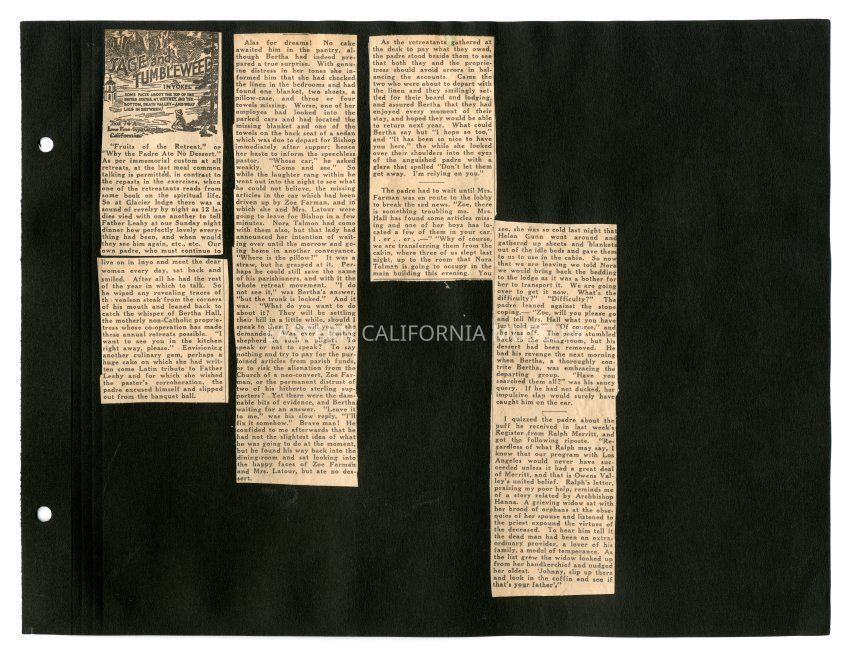 SAGE and
TUMBLEWEED
IN YOKEL
SOME FACTS ABOUT THE TOP OF THE
UNITED STATES, MT. WHITNEY, AND THE
BOTTOM, DEATH VALLEY—AND
LIFE IN BETWEEN
Lone Pine
California
"Fruits of the Retreat," or
"Why the Padre Ate No Dessert."
As per immemorial custom at all
retreats, at the last meal common
talking is permitted, in contrast to
the repasts in the exercises, when
one of the retreatants reads from
some book on the spiritual life.
So at Glacier lodge there was a
sound of revelry by night as 12 la-
dies vied with one another to tell
Father Leahy at our Sunday night
dinner how perfectly lovely every-
thing had been, and when would
they see him again, etc., etc. Our
own padre, who must continue to
live on in Inyo and meet the dear
women every day, sat back and
smiled. After all he had the rest
of the year in which to talk. So
he wiped any revealing traces of
the venison steak from the corners
of his mouth and leaned back to
catch the whisper of Bertha Hall,
the motherly non-Catholic proprie-
tress whose co-operation has made
these annual retreats possible. "I
want to see you in the kitchen
right away, please." Envisioning
another culinary gem, perhaps a
huge cake on which she had writ-
ten some Latin tribute to Father
Leahy and for which she wished
the pastor's corroboration, the
padre excused himself and slipped
out from the banquet hall.
Alas for dreams! No cake
awaited him in the pantry, al-
though Bertha had indeed pre-
pared a true surprise. With genu-
ine distress in her tones she in-
formed him that she had chocked
the linen in the bedrooms and had
found one blanket, two sheets, a
pillow-case, and three or four
towels missing. Worse, one of her
employes had looked into the
parked cars and had located the
missing blanket and one of the
towels on the back seat of a sedan
which was due to depart for Bishop
immediately after supper; hence
her haste to inform the speechless
pastor. "Whose car," he asked
weakly. "Come and see." So
while the laughter rang within he
went out into the night to see what
he could not believe, the missing
articles in the car which had been
driven up by Zoe Farman, and in
which she and Mrs. Latour were
going to leave for Bishop in a few
minutes. Nora Talmon had come
with them also, but that lady had
announced her intention of wait-
ing over until the morrow and go-
ing home in another conveyance.
"Where is the pillow?" It was a
straw, but he grasped at it. Per-
haps he could still save the name
of his parishioners, and with it the
whole retreat movement. "I do
not see it," was Bertha's answer,
"but the trunk is locked." And it
was. "What do you want to do
about it? They will be settling
their bill in a little while, should I
speak to them? Or will you?" she
demanded. Was ever a trusting
shepherd in such a plight? To
speak or not to speak? To say
nothing and try to pay for the pur-
loined articles from parish funds,
or to risk the alienation from the
Church of a neo-convert, Zoe Far-
man, or the permanent distrust of
two of his hitherto sterling sup-
porters? Yet there were the dam-
nable bits of evidence, and Bertha
waiting for an answer. "Leave it
to me," was his slow reply, "I'll
fix it somehow." Brave man! He
confided to me afterwards that he
had not the slightest idea of what
he was going to do at the moment,
but he found his way back into the
dining-room and sat looking into
the happy faces of Zoe Farman
and Mrs. Latour, but ate no des-
sert.
As the retreatants gathered at
the desk to pay what they owed,
the padre stood beside them to see
that both they and the proprie-
tress should avoid errors in bal-
ancing the accounts. Came the
two who were about to depart with
the linen and they smilingly set-
tled for their board and lodging,
and assured Bertha that they had
enjoyed every moment of their
stay, and hoped they would be able
to return next year. What could
Bertha say but "I hope so too,"
and "It has been so nice to have
you here," the while she looked
over their shoulders into the eyes
of the anguished padre with a
glare that spelled "Don't let them
get away. I'm relying on you."
The padre had to wait until Mrs.
Farman was en route to the lobby
to break the sad news. "Zoe, there
is something troubling me. Mrs.
Hall has found some articles miss-
ing and one of her boys has lo-
cated a few of them in your car.
I . er . . or . .—" "Why of course,
we are transferring them from the
cabin, where three of us slept last
night, up to the room that Nora
Tolmen is going to occupy in the
main building this evening. You
see, she was so cold last night that
Helen Gunn went around and
gathered up sheets and blankets
out of the idle beds and gave them
to us to use in the cabin. So now
that we are leaving we told Nora
we would bring back the bedding
to the lodge as it was a bother for
her to transport it. We are going
over to get it now. What's the
difficulty?" "Difficulty?" The
padre leaned against the stone
coping.—"Zoe, will you please go
and tell Mrs. Hall what you have
just told me?" "Of course," and
she was off. The padre stumbled
back to the dining-room, but his
dessert had been removed. He
had his revenge the next morning
when Bertha, a thoroughly con-
trite Bertha, was embracing the
departing group. "Have you
searched them all?" was his saucy
query. If he had not ducked, her
impulsive slap would surely have
caught him on the ear.
I quizzed the padre about the
puff he received in last week's
Register from Ralph Merritt, and
got the following riposte. "Re-
gardless of what Ralph may say, I
know that our program with Los
Angeles would never have suc-
ceeded unless it had a great deal
of Merritt, and that is Owens Val-
ley's united belief. Ralph's letter,
praising my poor help, reminds me
of a story related by Archbishop
Hanna. A grieving widow sat with
her brood of orphans at the obse-
quies of her spouse and listened to
the priest expound the virtues of
the deceased. To hear him tell it
the dead man had been an extra-
ordinary provider, a lover of his
family, a model of temperance. As
the list grew the widow looked up
from her handkerchief and nudged
her oldest. 'Johnny, slip up there
and look in the coffin and see if
that's your father'."
CALIFORNIA